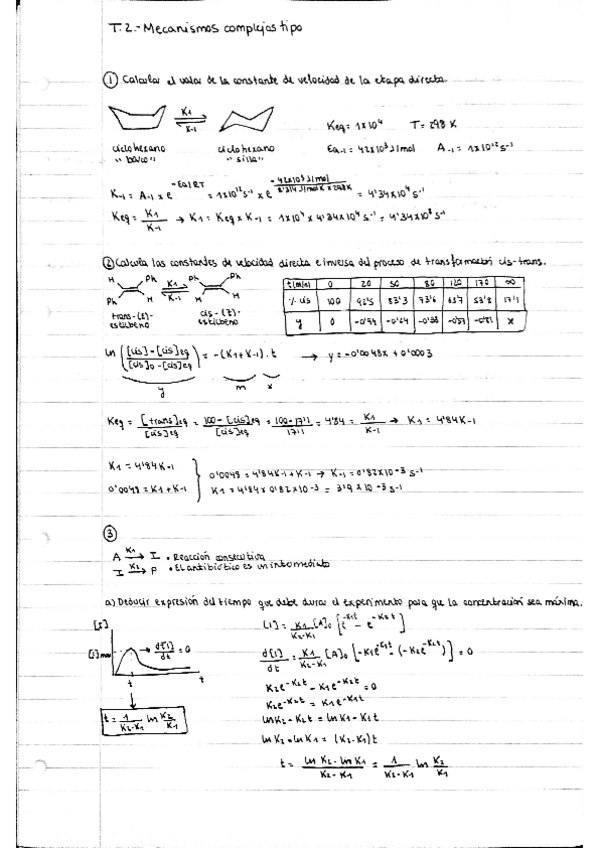 T.2.- Mecanismos complejos tipo
① Calcular el valor de la constante de velocidad de la etapa directa.
K1
K-1
ciclohexano "barco"
ciclohexano "silla"
Keq = 1x10⁴ T = 298 K
Ea-1 = 42x10³ J/mol A-1 = 1x10¹² s⁻¹
K-1 = A-1 x e^(-Ea/RT) = 1x10¹² s⁻¹ x e^(-42x10³ J/mol / 8'314 J/mol K x 298K) = 4'34x10⁴ s⁻¹
Keq = K1/K-1 → K1 = Keq x K-1 = 1x10⁴ x 4'34x10⁴ s⁻¹ = 4'34x10⁸ s⁻¹
② Calcula las constantes de velocidad directa e inversa del proceso de transformación cis-trans.
H Ph K1 Ph Ph
Ph H K-1 H H
trans-(E)-estilbeno
cis-(Z)-estilbeno
t(min) 0 20 50 80 120 170 ∞
% cis 100 92'5 83'3 73'6 63'7 53'8 17'1
y 0 -0'57 x
ln ([cis]-[cis]eq / [cis]0-[cis]eq) = -(K1+K-1)·t → y = -0'0048x + 0'0003
y m x
Keq = [trans]eq/[cis]eq = 100-[cis]eq/[cis]eq = 100-17'1/17'1 = 4'84 = K1/K-1 → K1 = 4'84K-1
K1 = 4'84K-1
0'0048 = K1 + K-1
0'0048 = 4'84K-1 + K-1 → K-1 = 0'82x10-3 s-1
K1 = 4'84 x 0'82x10-3 = 3'9 x 10-3 s-1
③
A K1→ I • Reacción consecutiva
I K2→ P • El antibiótico es un intermediato
a) Deducir expresión del tiempo que debe durar el experimento para que la concentración sea máxima.
[I]
[I]max
d[I]/dt = 0
t
t
t = 1/K2-K1 ln K2/K1
[I] = K1/K2-K1 [A]0 [e^-K1t - e^-K2t]
d[I]/dt = K1/K2-K1 [A]0 [-K1e^-K1t - (-K2e^-K2t)] = 0
K2e^-K2t - K1e^-K1t = 0
K2e^-K2t = K1e^-K1t
lnK2 - K2t = lnK1 - K1t
lnK2 - lnK1 = (K2-K1)t
t = ln K2 - ln K1 / K2 - K1 = 1/K2-K1 ln K2/K1